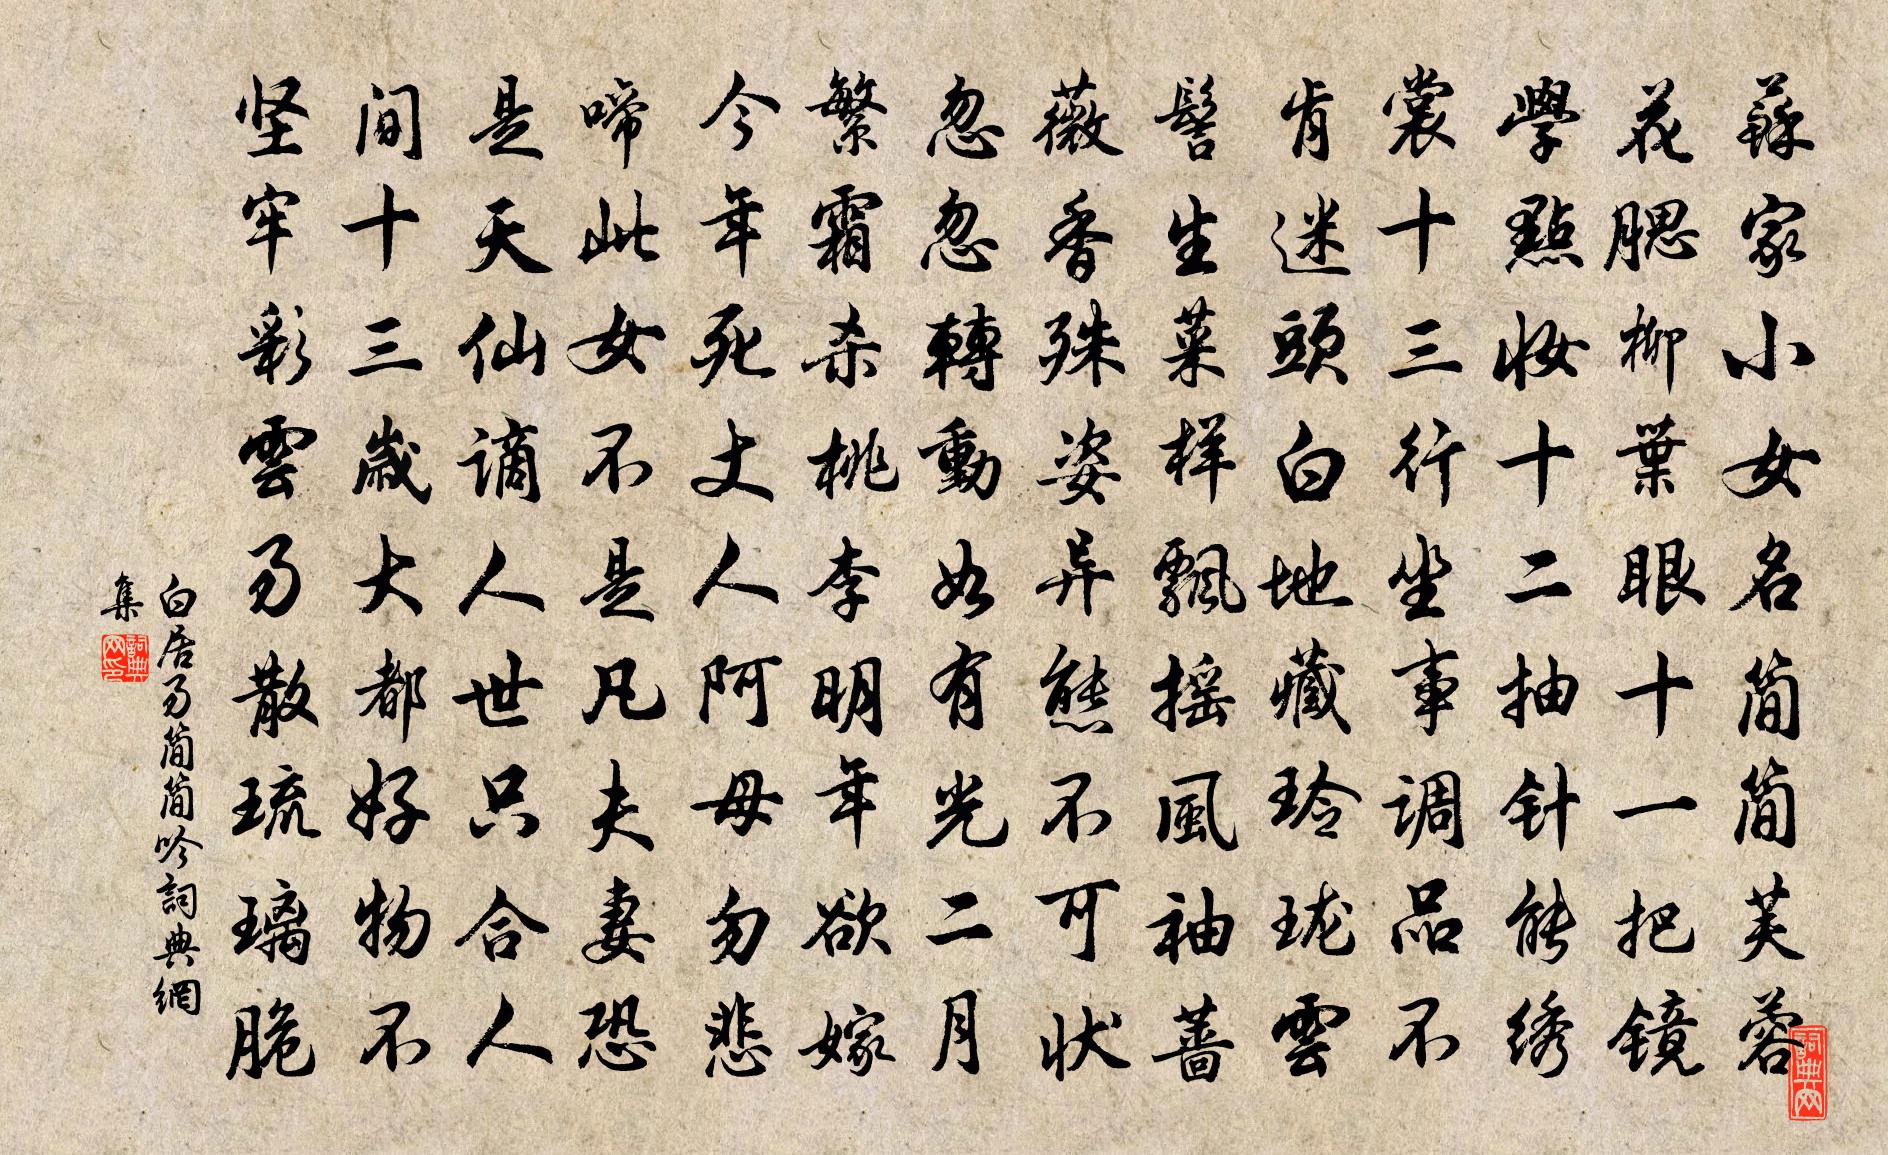 蘇家小女名简简芙蓉
花腮柳葉眼十一把镜
學點妆十二抽针能绣
裳十三行坐事调品不
肯迷頭白地藏玲珑雲
髻生菜样飘摇風袖蔷
薇香殊姿异態不可状
忽忽轉動如有光二月
繁霜杀桃李明年欲嫁
今年死丈人阿母勿悲
啼此女不是凡夫妻恐
是天仙谪人世只合人
间十三歲大都好物不
坚牢彩雲易散琉璃脆
白居易简简吟詞典網
集
詞典网
詞典网印